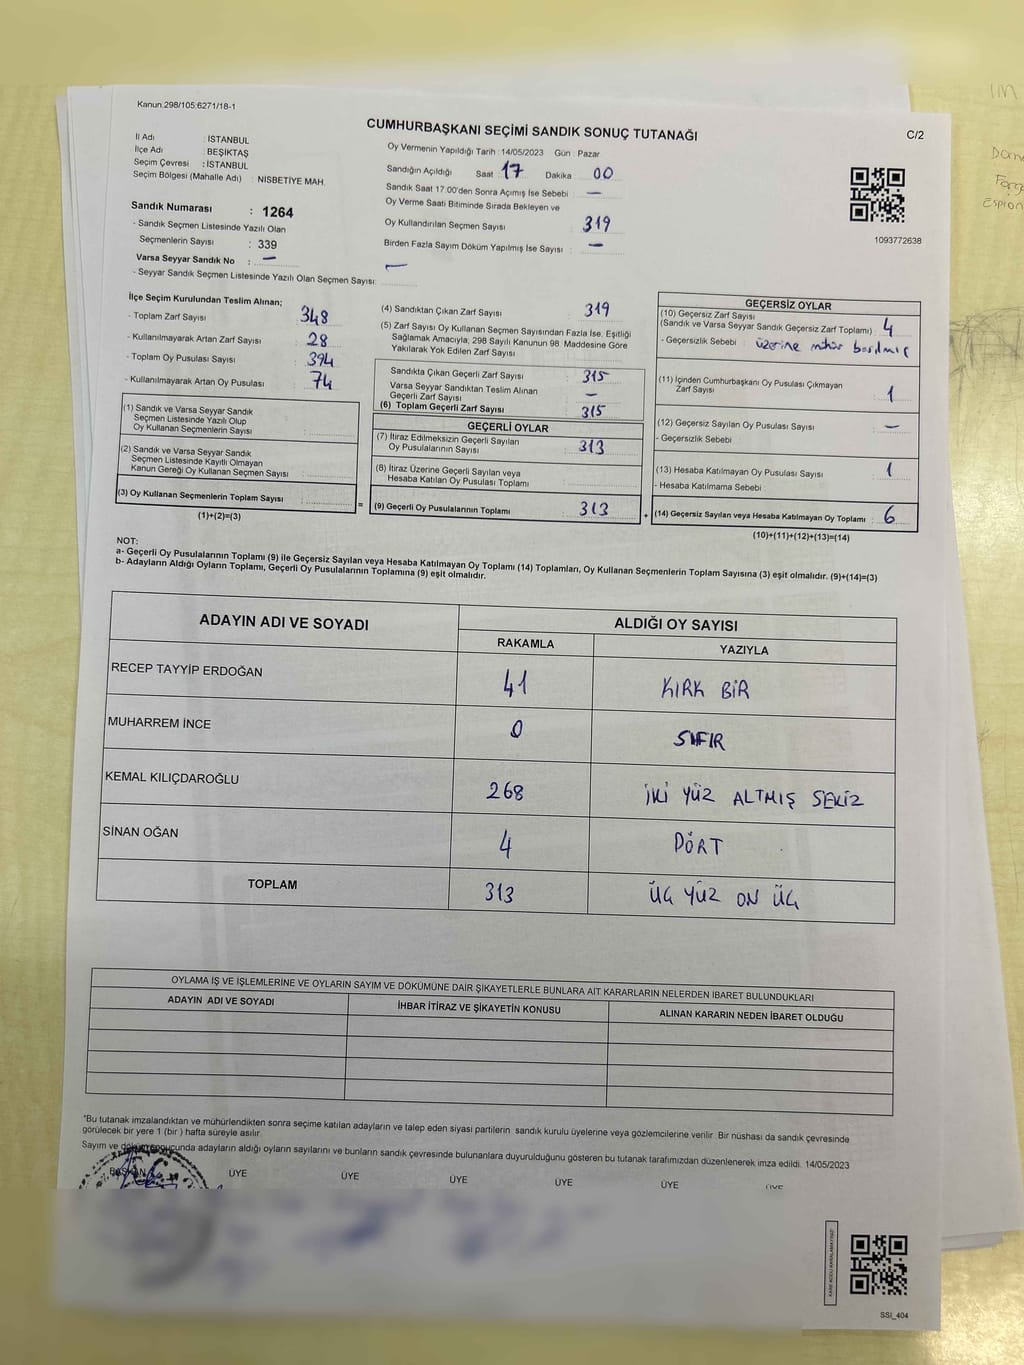 Kanun:298/105;6271/18-1
CUMHURBAŞKANI SEÇİMİ SANDIK SONUÇ TUTANAĞI
C/2
İl Adı : İSTANBUL
İlçe Adı : BEŞİKTAŞ
Seçim Çevresi : İSTANBUL
Seçim Bölgesi (Mahalle Adı) : NİSBETİYE MAH.
Oy Vermenin Yapıldığı Tarih : 14/05/2023 Gün : Pazar
Sandığın Açıldığı Saat 17 Dakika 00
Sandık Saat 17.00'den Sonra Açımış İse Sebebi : —
Oy Verme Saati Bitiminde Sırada Bekleyen ve
Oy Kullandırılan Seçmen Sayısı : 319
Birden Fazla Sayım Döküm Yapılmış İse Sayısı : —
1093772638
Sandık Numarası : 1264
- Sandık Seçmen Listesinde Yazılı Olan
Seçmenlerin Sayısı : 339
Varsa Seyyar Sandık No : —
- Seyyar Sandık Seçmen Listesinde Yazılı Olan Seçmen Sayısı: —
İlçe Seçim Kurulundan Teslim Alınan;
- Toplam Zarf Sayısı : 348
- Kullanılmayarak Artan Zarf Sayısı : 28
- Toplam Oy Pusulası Sayısı : 394
- Kullanılmayarak Artan Oy Pusulası : 74
(1) Sandık ve Varsa Seyyar Sandık
Seçmen Listesinde Yazılı Olup
Oy Kullanan Seçmenlerin Sayısı :
(2) Sandık ve Varsa Seyyar Sandık
Seçmen Listesinde Kayıtlı Olmayan
Kanun Gereği Oy Kullanan Seçmen Sayısı :
(3) Oy Kullanan Seçmenlerin Toplam Sayısı :
(1)+(2)=(3)
=
(4) Sandıktan Çıkan Zarf Sayısı : 319
(5) Zarf Sayısı Oy Kullanan Seçmen Sayısından Fazla İse, Eşitliği
Sağlamak Amacıyla, 298 Sayılı Kanunun 98. Maddesine Göre
Yakılarak Yok Edilen Zarf Sayısı :
Sandıkta Çıkan Geçerli Zarf Sayısı : 315
Varsa Seyyar Sandıktan Teslim Alınan
Geçerli Zarf Sayısı : —
(6) Toplam Geçerli Zarf Sayısı : 315
GEÇERLİ OYLAR
(7) İtiraz Edilmeksizin Geçerli Sayılan
Oy Pusulalarının Sayısı : 313
(8) İtiraz Üzerine Geçerli Sayılan veya
Hesaba Katılan Oy Pusulası Toplamı :
(9) Geçerli Oy Pusulalarının Toplamı : 313
+
GEÇERSİZ OYLAR
(10) Geçersiz Zarf Sayısı
(Sandık ve Varsa Seyyar Sandık Geçersiz Zarf Toplamı) : 4
- Geçersizlik Sebebi : üzerine mühür basılmış
(11) İçinden Cumhurbaşkanı Oy Pusulası Çıkmayan
Zarf Sayısı : 1
(12) Geçersiz Sayılan Oy Pusulası Sayısı : —
- Geçersizlik Sebebi
(13) Hesaba Katılmayan Oy Pusulası Sayısı : 1
- Hesaba Katılmama Sebebi :
(14) Geçersiz Sayılan veya Hesaba Katılmayan Oy Toplamı : 6
(10)+(11)+(12)+(13)=(14)
NOT:
a- Geçerli Oy Pusulalarının Toplamı (9) ile Geçersiz Sayılan veya Hesaba Katılmayan Oy Toplamı (14) Toplamları, Oy Kullanan Seçmenlerin Toplam Sayısına (3) eşit olmalıdır. (9)+(14)=(3)
b- Adayların Aldığı Oyların Toplamı, Geçerli Oy Pusulalarının Toplamına (9) eşit olmalıdır.
ADAYIN ADI VE SOYADI ALDIĞI OY SAYISI
RAKAMLA YAZIYLA
RECEP TAYYİP ERDOĞAN 41 KIRK BİR
MUHARREM İNCE 0 SIFIR
KEMAL KILIÇDAROĞLU 268 İKİ YÜZ ALTMIŞ SEKİZ
SİNAN OĞAN 4 DÖRT
TOPLAM 313 ÜÇ YÜZ ON ÜÇ
OYLAMA İŞ VE İŞLEMLERİNE VE OYLARIN SAYIM VE DÖKÜMÜNE DAİR ŞİKAYETLERLE BUNLARA AİT KARARLARIN NELERDEN İBARET BULUNDUKLARI
ADAYIN ADI VE SOYADI İHBAR İTİRAZ VE ŞİKAYETİN KONUSU ALINAN KARARIN NEDEN İBARET OLDUĞU
*Bu tutanak imzalandıktan ve mühürlendikten sonra seçime katılan adayların ve talep eden siyasi partilerin sandık kurulu üyelerine veya gözlemcilerine verilir. Bir nüshası da sandık çevresinde
görülecek bir yere 1 (bir ) hafta süreyle asılır.
Sayım ve döküm sonucunda adayların aldığı oyların sayılarını ve bunların sandık çevresinde bulunanlara duyurulduğunu gösteren bu tutanak tarafımızdan düzenlenerek imza edildi. 14/05/2023
BAŞKAN ÜYE ÜYE ÜYE ÜYE ÜYE ÜYE
KARE KODU KARALAMAYINIZ!
SSI_404